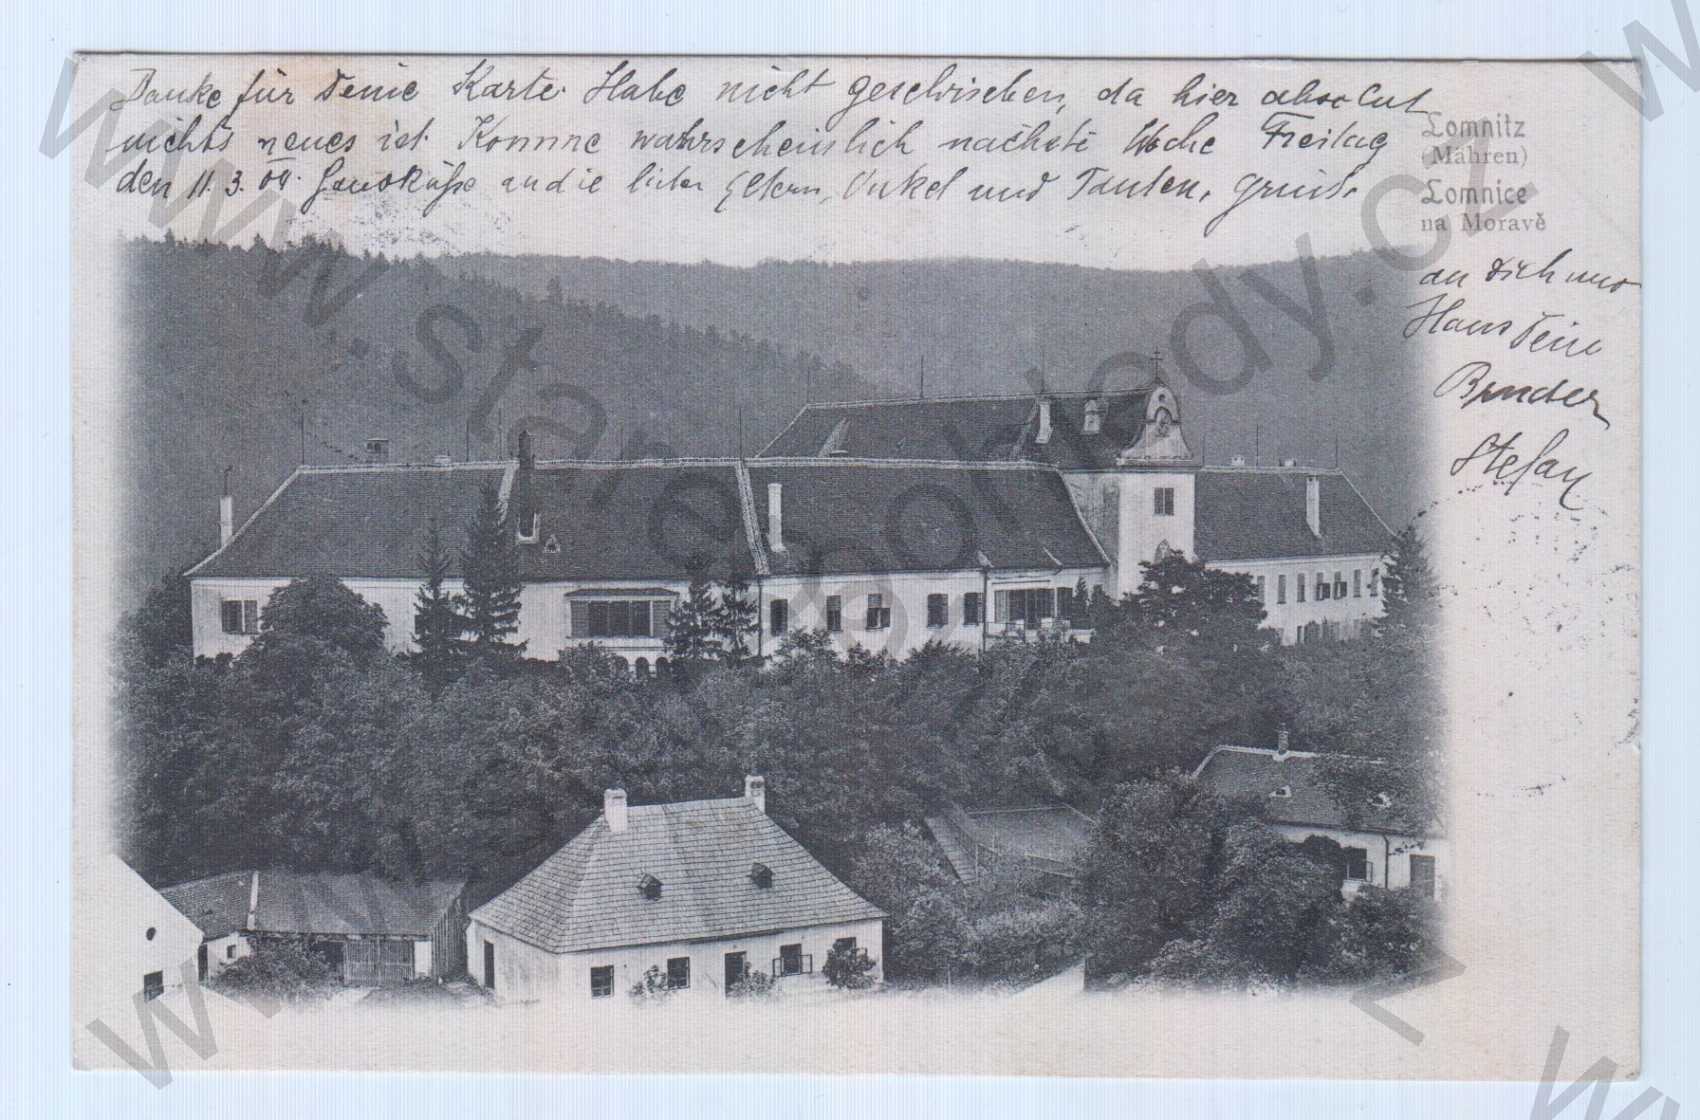 Danke für Deine Karte. Habe nicht geschrieben, da hier absolut
nichts neues ist. Komme wahrscheinslich nächste Woche Freitag
den 11. 3. 04. Handküsse an die lieben Eltern, Onkel und Tanten, Gruss
Lomnitz
(Mähren)
Lomnice
na Moravě
an Dich und
Hans Dein
Bruder
Stefan
www.starepohledy.cz